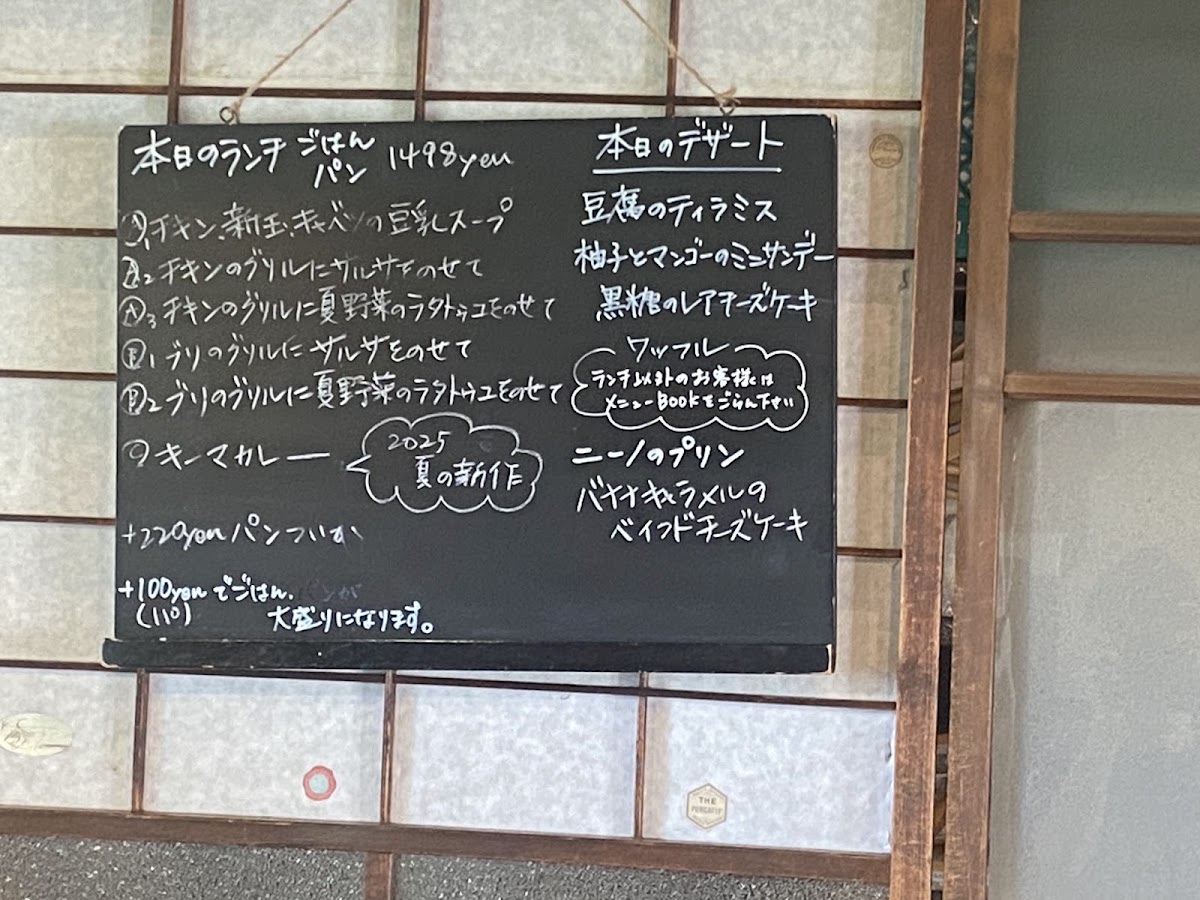 本日のランチ ごはん パン 1498yen
Ⓐ1 チキン、新玉、キャベツの豆乳スープ
Ⓐ2 チキンのグリルにサルサをのせて
Ⓐ3 チキンのグリルに夏野菜のラタトゥユをのせて
Ⓑ1 ブリのグリルにサルサをのせて
Ⓑ2 ブリのグリルに夏野菜のラタトゥユをのせて
キーマカレー
2025
夏の新作
+220yen パンついか
+100yen でごはん、パンが
(110) 大盛りになります。
本日のデザート
豆腐のティラミス
柚子とマンゴーのミニサンデー
黒糖のレアチーズケーキ
ワッフル
ランチ以外のお客様は
メニューBOOKをごらん下さい
ニーノのプリン
バナナキャラメルの
ベイクドチーズケーキ
THE